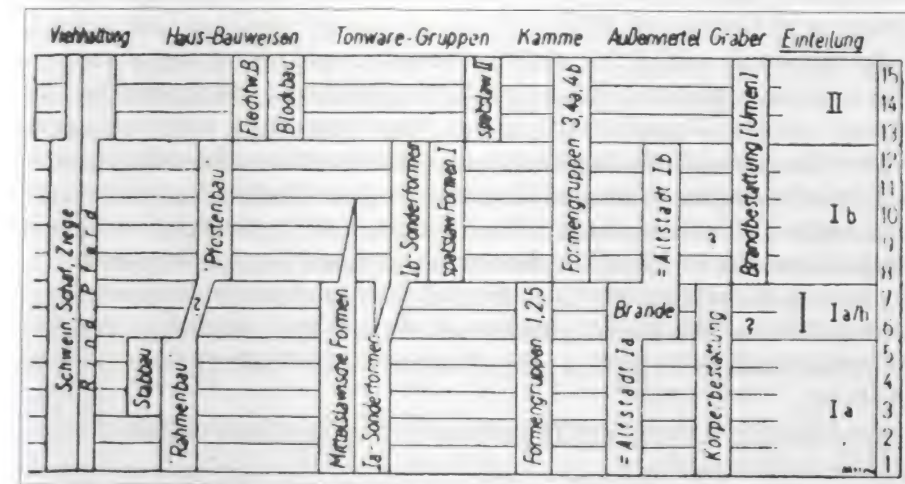 Viehhaltung Haus-Bauweisen Tonware-Gruppen Kämme Außenviertel Gräber Einteilung
Schwein, Schaf, Ziege
Rind Pferd
Stabbau
Rahmenbau
?
Pfostenbau
Flechtw.B
Blockbau
Mittelslawische Formen
Ia-Sonderformen
Ib-Sonderformen
spätslaw Formen I
spätslaw II
Formengruppen 1,2,5
Formengruppen 3,4a,4b
=Altstadt Ia
Brände
=Altstadt Ib
Körperbestattung
?
?
Brandbestattung [Urnen]
II
Ib
Ia/b
Ia
15
14
13
12
11
10
9
8
7
6
5
4
3
2
1